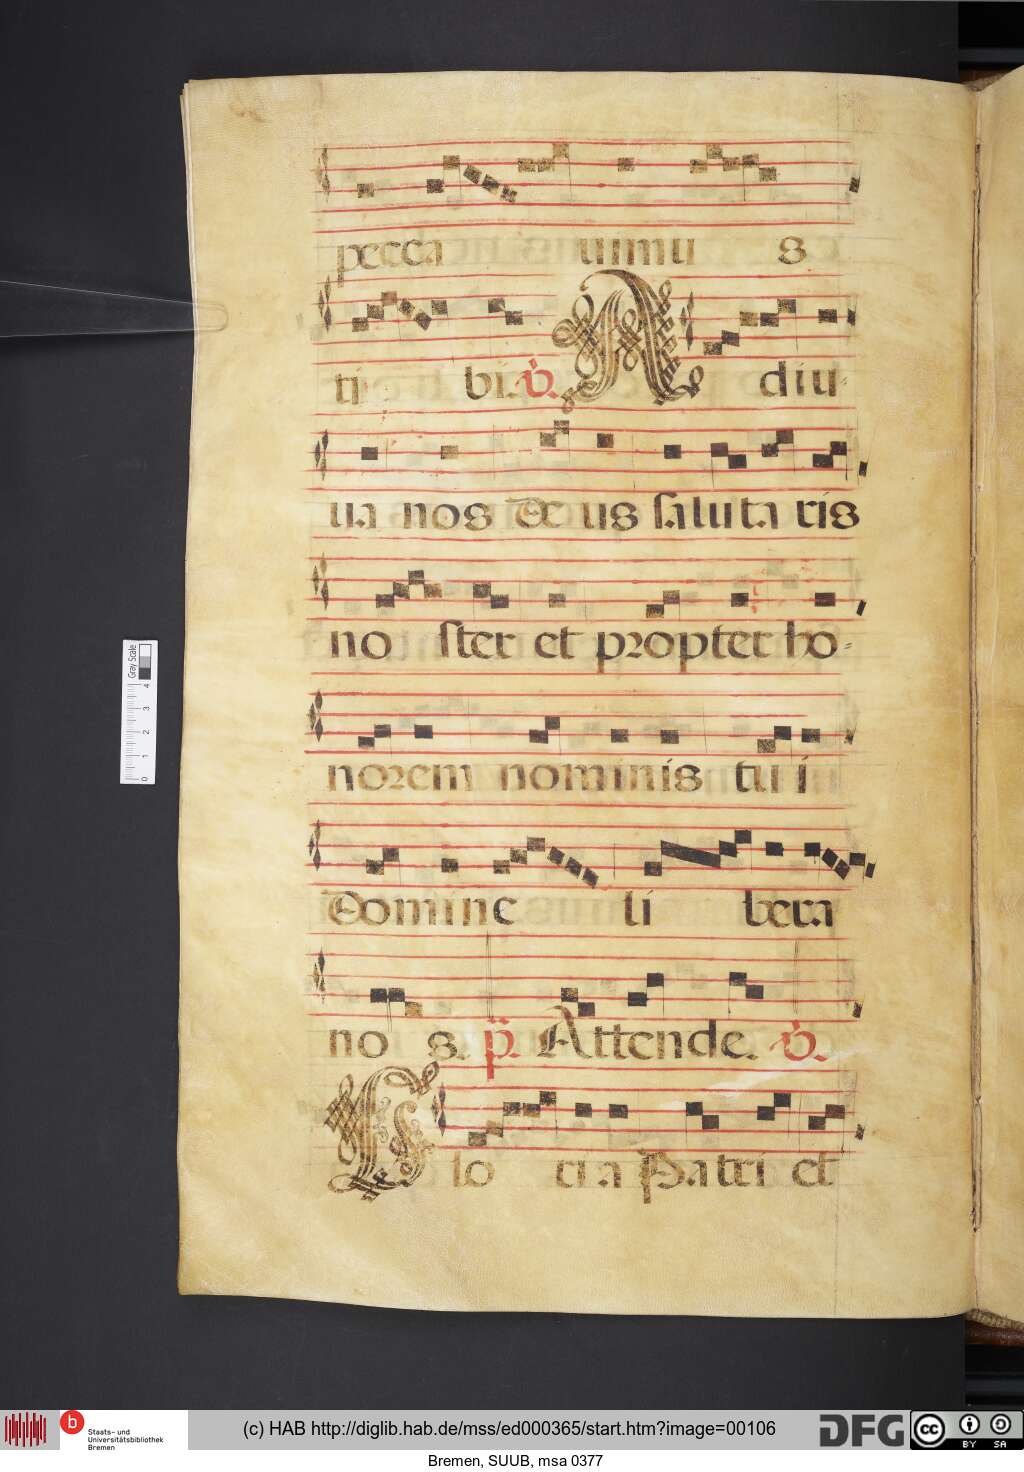 pecca uimu s
ti bi. ꝟ. A diu-
ua nos De us saluta ris
no ster et propter ho-
norem nominis tu i
Domine li bera
no s. p. Attende. ꝟ.
Glo ri a Patri et
Gray Scale
0 1 2 3 4
b Staats- und
Universitätsbibliothek
Bremen
(c) HAB http://diglib.hab.de/mss/ed000365/start.htm?image=00106
DFG
cc BY SA
Bremen, SUUB, msa 0377